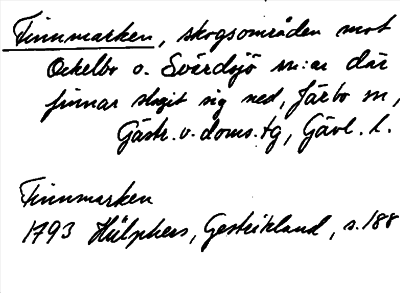 Finnmarken, skogsområden mot
Ockelbo o. Svärdsjö sn:ar där
finnar slagit sig ned, Järbo sn,
Gästr.v.doms.tg, Gävl. l.
Finnmarken
1793 Hülphers, Gestrikland, s.188